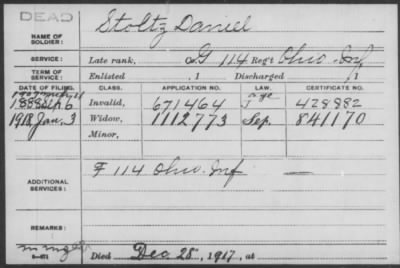 DEAD
NAME OF SOLDIER: Stoltz Daniel
SERVICE: Late rank, Co. G 114 Reg't Ohio Inf
TERM OF SERVICE: Enlisted , 1 Discharged , 1
DATE OF FILING. CLASS. APPLICATION NO. LAW. CERTIFICATE NO.
1907 age
1888 6 Invalid, 671464 J 428882
1918, Jan. 3 Widow, 1112773 Sep. 841170
Minor,
ADDITIONAL SERVICES: F 114 Ohio Inf —
REMARKS:
Died Dec 28, 1917, at